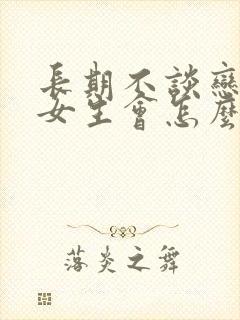 長期不談戀
女生會怎麼
落炎之舞